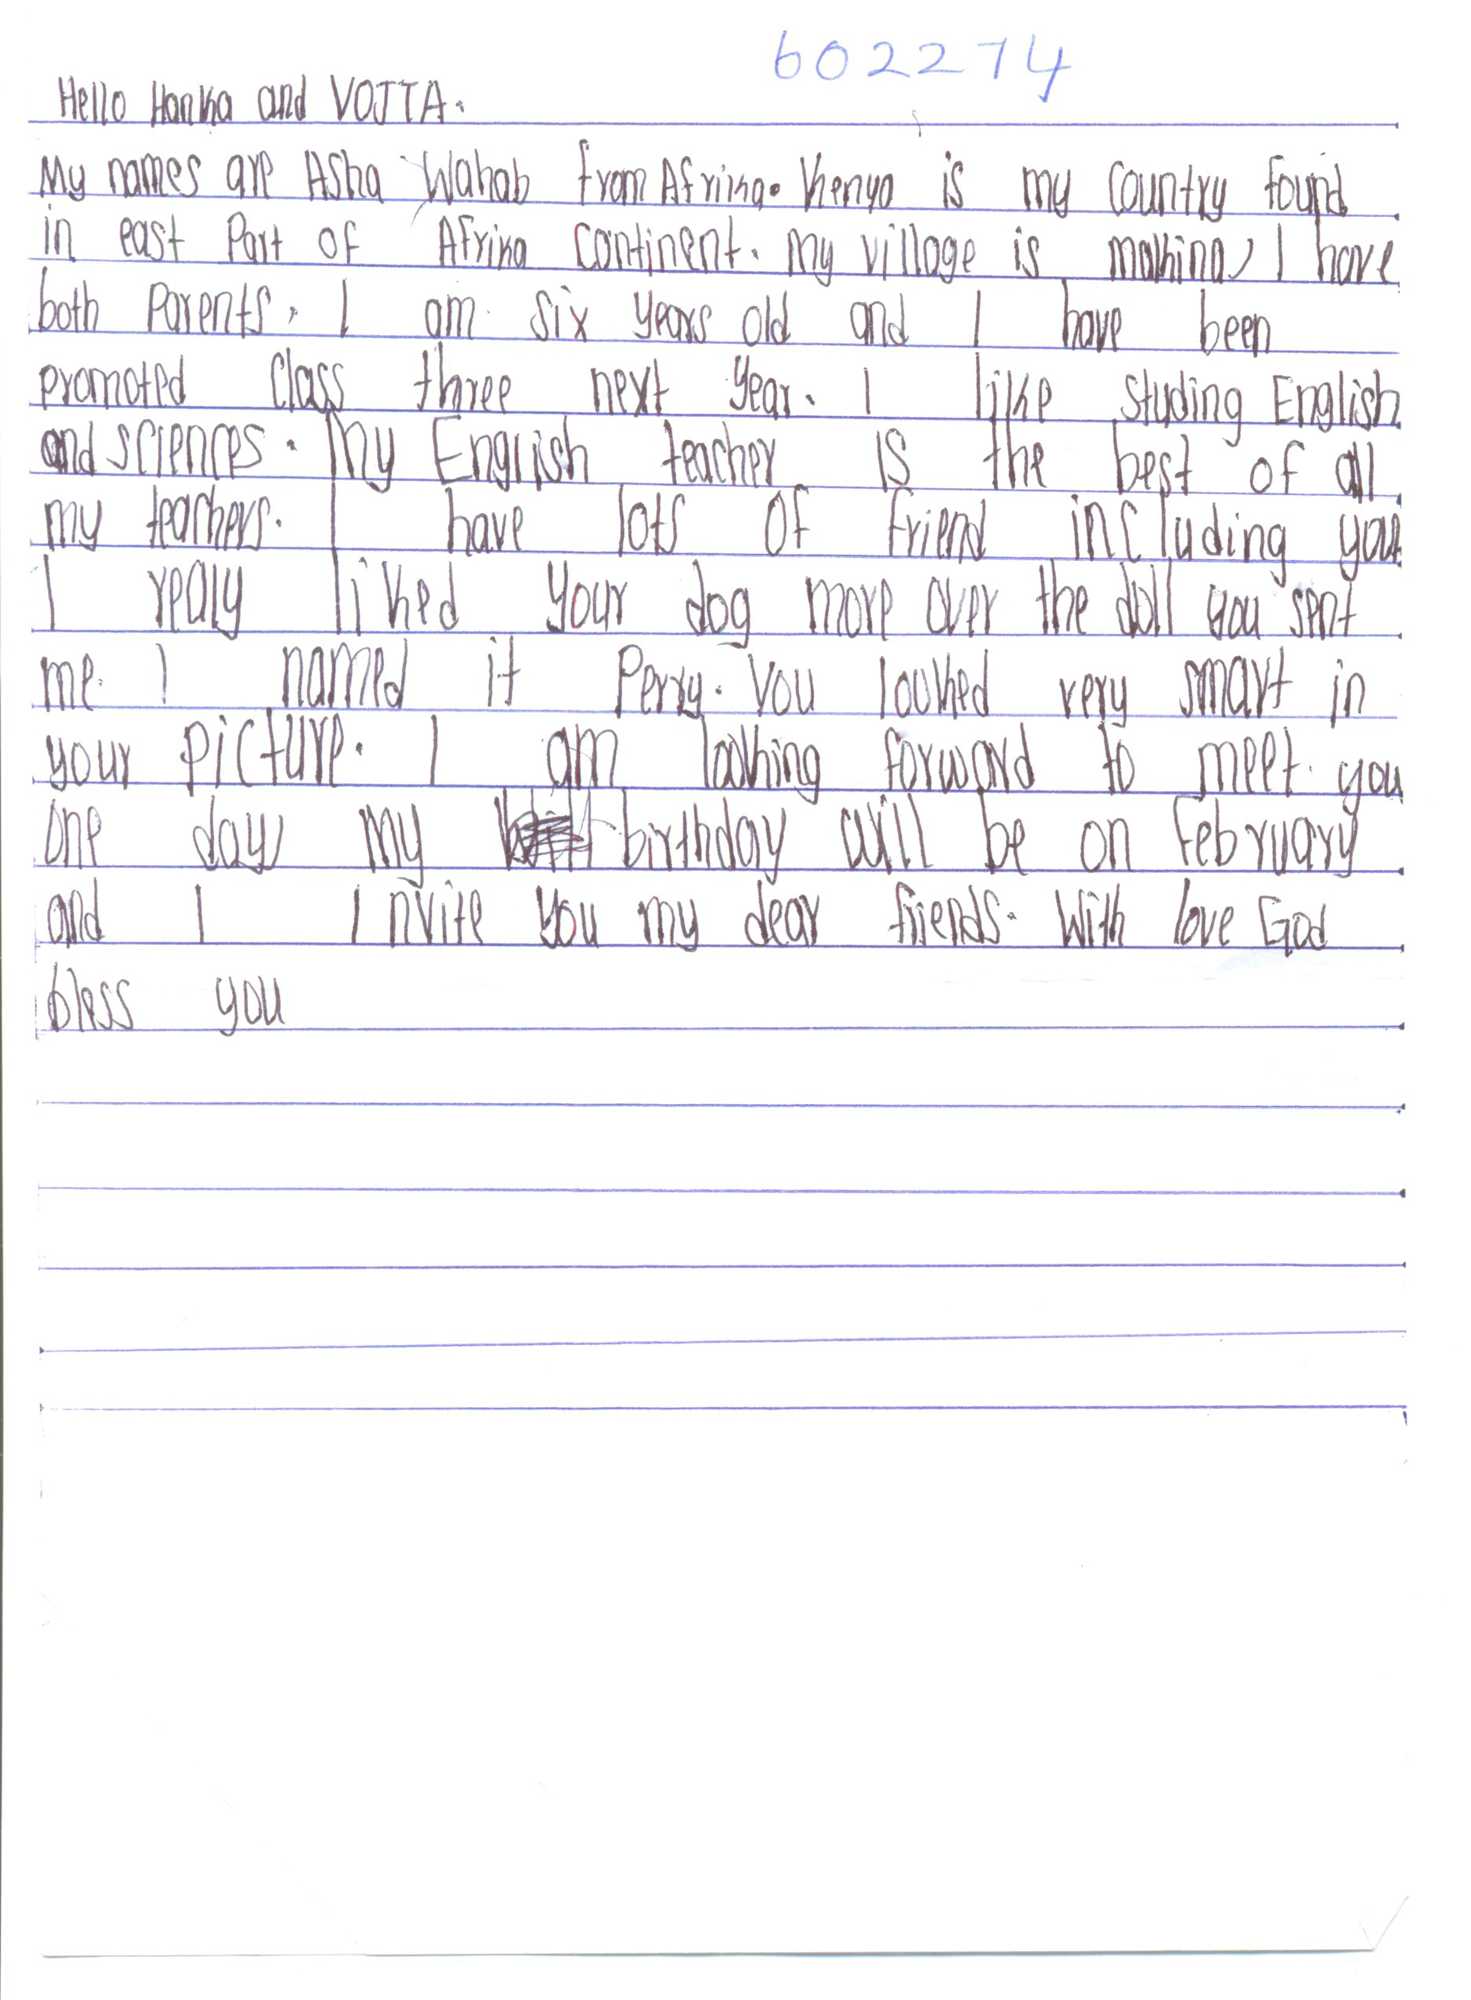 602274
Hello Hanka and VOJTA.
My names are Asha Wahab from Afrika. Kenya is my country found
in east Part of Afrika continent. My village is makina, I have
both Parents. I am six years old and I have been
promoted class three next year. I like studing English
and sciences. My English teacher is the best of all
my teachers. I have lots of friend including you.
I realy liked your dog more over the doll you sent
me. I named it Perry. You looked very smart in
your picture. I am looking forward to meet you
one day my birthday will be on February
and I Invite you my dear friends. With love God
bless you